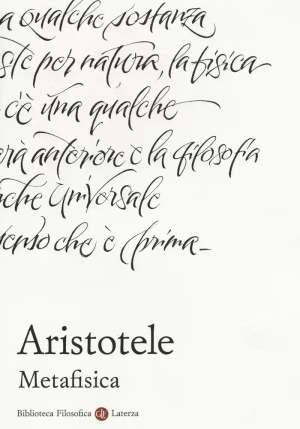 a qualche sostanza
ste per natura, la fisica
c'è una qualche
rà anteriore e la filosofia
nche universale
senso che è prima
Aristotele
Metafisica
Biblioteca Filosofica Laterza